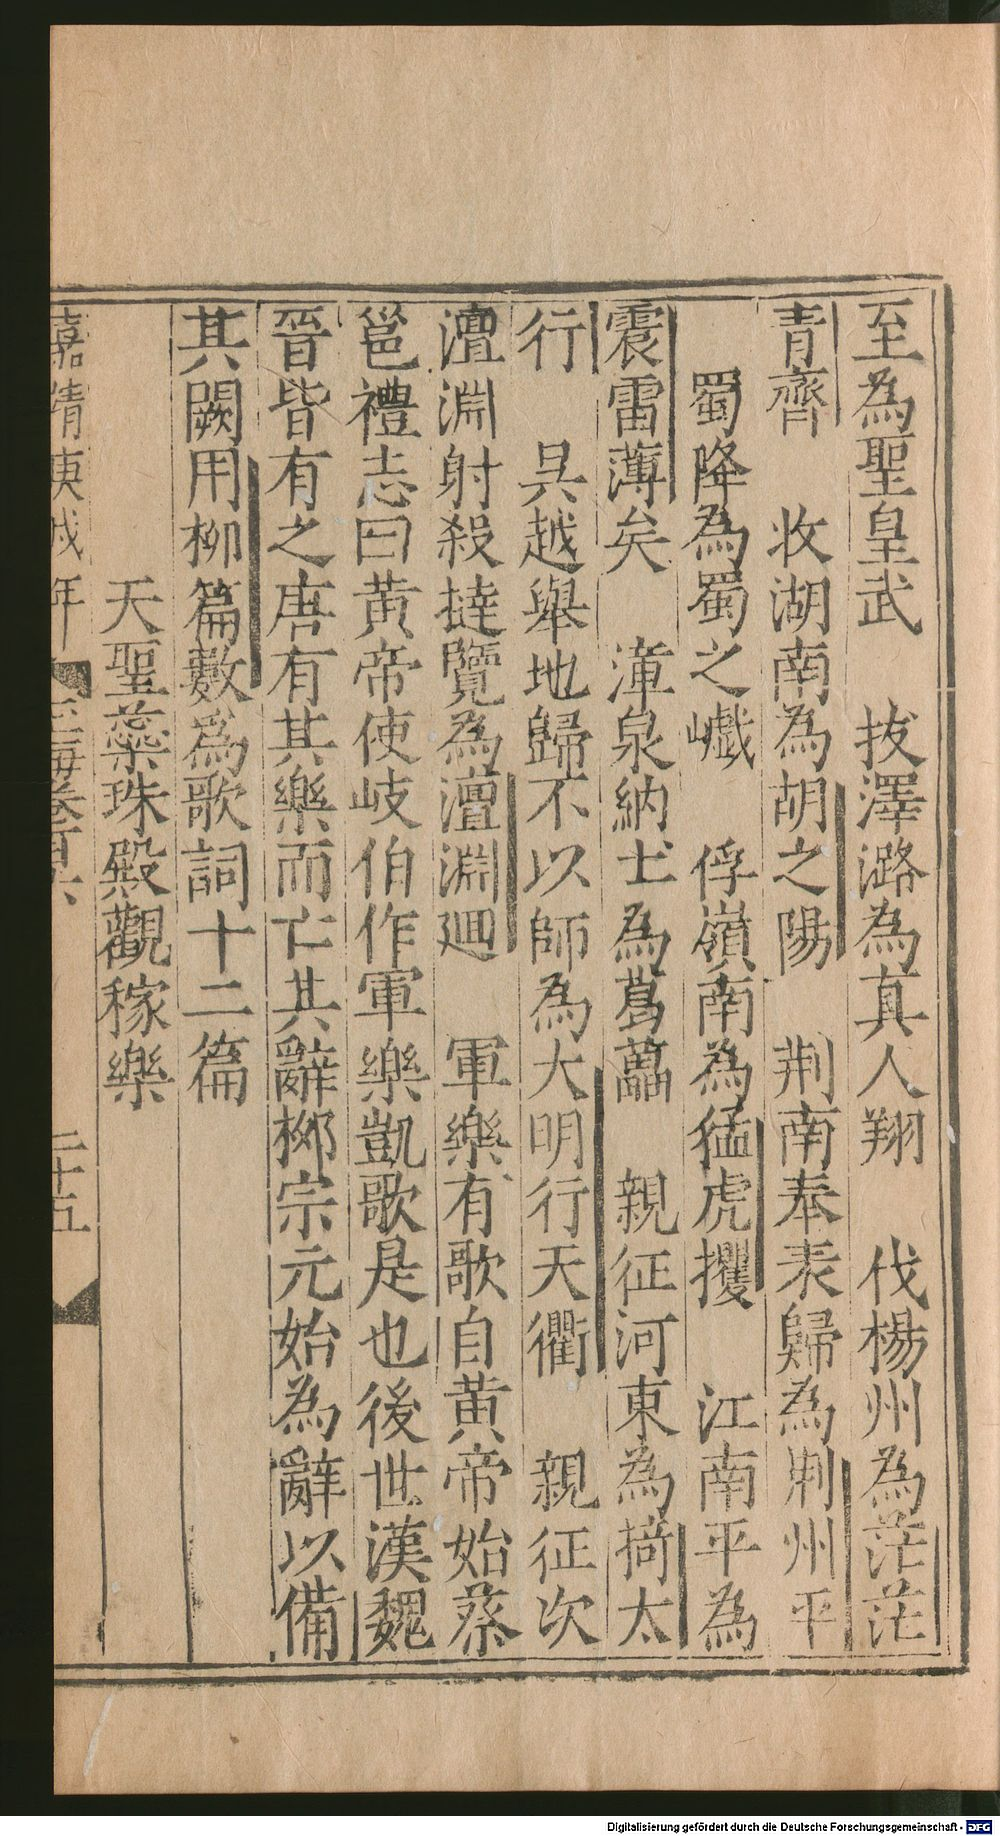 至為聖皇武　拔澤潞為真人翔　伐楊州為茫茫
青齊　收湖南為胡之陽　荆南奉表歸為荆州平
蜀降為蜀之巇　俘嶺南為猛虎攫　江南平為
震雷薄矣　漳泉納士為葛藟　親征河東為掎太
行　吳越舉地歸不以師為大明行天衢　親征次
澶淵射殺撻覽為澶淵迴　軍樂有歌自黄帝始蔡
邕禮志曰黄帝使岐伯作軍樂凱歌是也後世漢魏
晉皆有之唐有其樂而亡其辭柳宗元始為辭以備
其闕用柳篇數爲歌詞十二篇
天聖蘂珠殿觀稼樂
嘉靖庚戌年　玉海卷百六　二十五
Digitalisierung gefördert durch die Deutsche Forschungsgemeinschaft - DFG